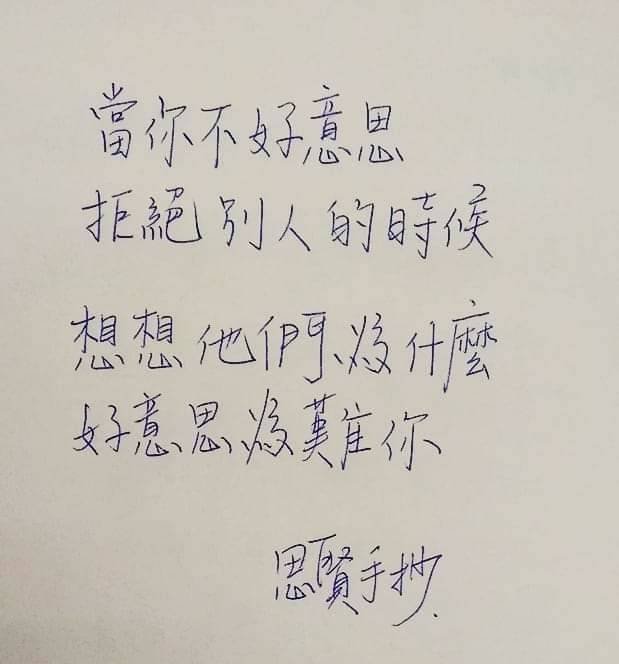 當你不好意思
拒絕別人的時候
想想他們為什麼
好意思為難你
思賢手抄.